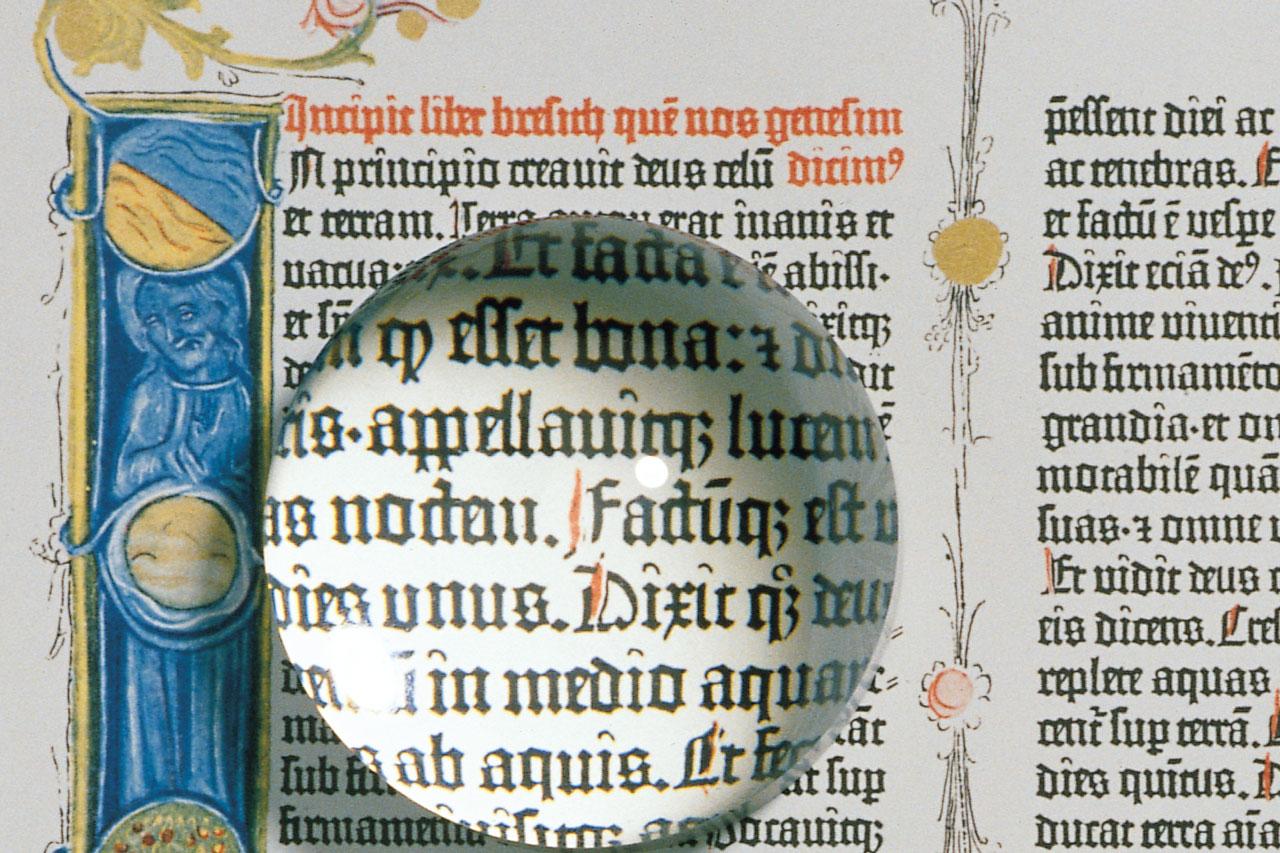 Incipit liber bresith quē nos genesim
N principio creauit deus celū dicimꝰ
et terram. Terra autem erat inanis et
vacua: abissi.
Et facta
m qꝫ esset bona: ⁊
appellauitqꝫ lucem
as noctem. Factūqꝫ est
dies vnus. Dixit qꝫ deus
in medio aquar
ab aquis. Et fec
sub fi at sup
firmamentū vocauitqꝫ
p̄essent diei ac
ac tenebras.
et factū ē vespe
Dixit eciā deꝰ.
anime viuenti
sub firmamēto
grandia. et om
motabilē quā
suas. ⁊ omne
Et vidit deus
eis dicens. Cre
replete aquas
cent sup terrā.
dies quintus.
ducat terra aīa